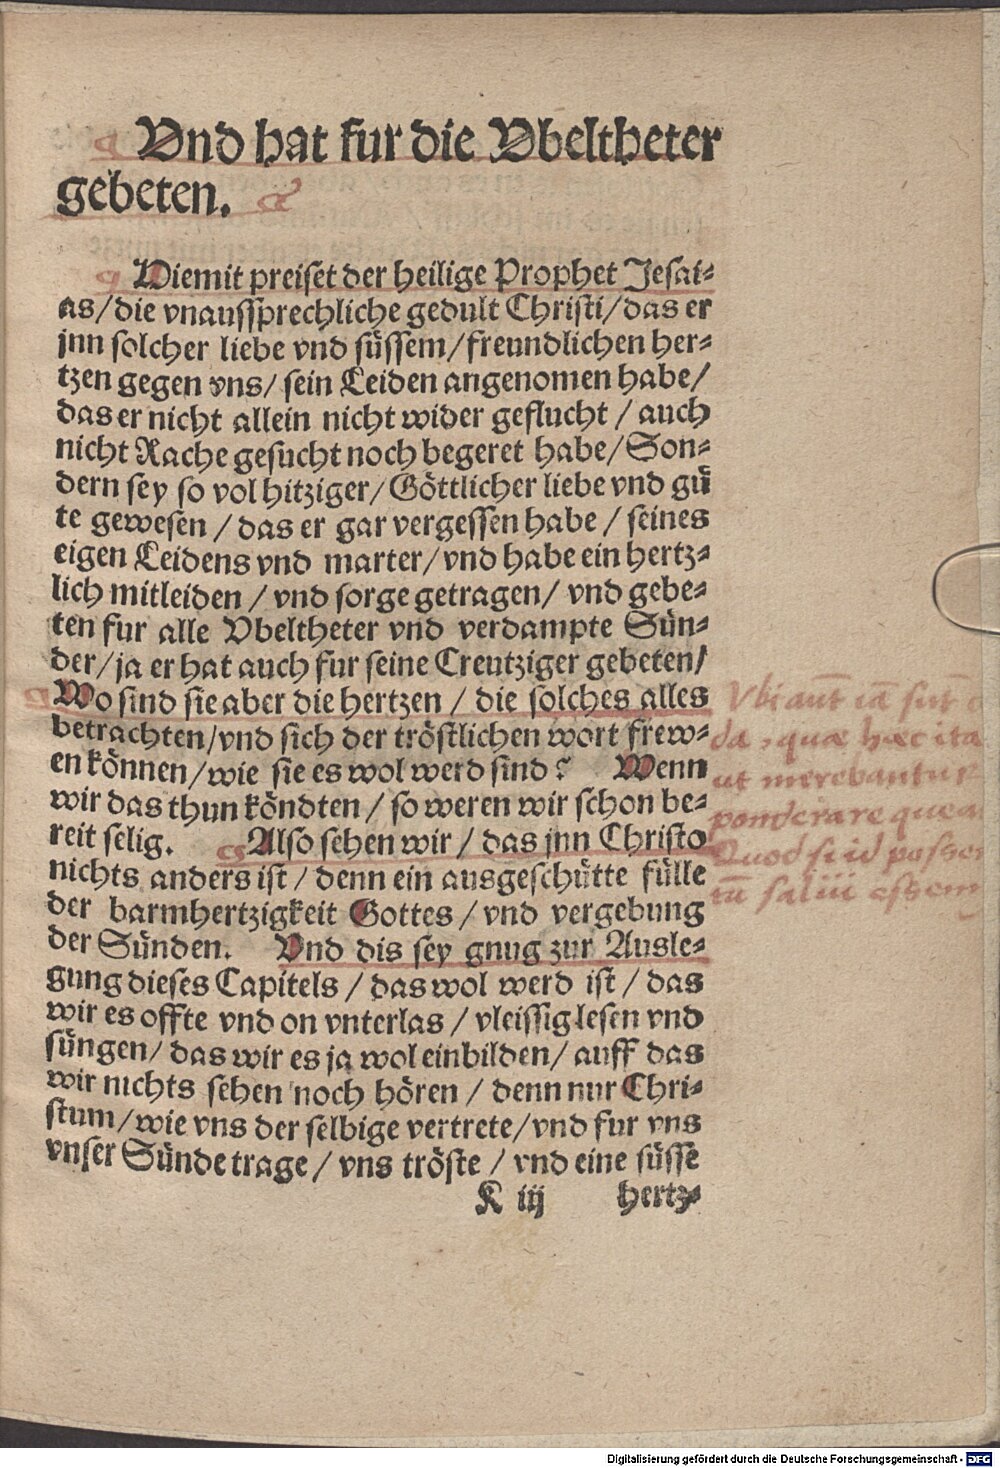 Vnd hat fur die Vbeltheter
gebeten.
Hiemit preiset der heilige Prophet Jesai⸗
as/die vnaussprechliche gedult Christi/das er
jnn solcher liebe vnd süssem/freundlichen her⸗
tzen gegen vns/ sein Leiden angenomen habe/
das er nicht allein nicht wider geflucht / auch
nicht Rache gesucht noch begeret habe/Son⸗
dern sey so vol hitziger/Göttlicher liebe vnd gü
te gewesen /das er gar vergessen habe / seines
eigen Leidens vnd marter/vnd habe ein hertz⸗
lich mitleiden / vnd sorge getragen/ vnd gebe⸗
ten fur alle Vbeltheter vnd verdampte Sün⸗
der/ja er hat auch fur seine Creutziger gebeten/
Wo sind sie aber die hertzen / die solches alles
betrachten/vnd sich der tröstlichen wort frew⸗
en können/wie sie es wol werd sind? Wenn
wir das thun köndten / so weren wir schon be⸗
reit selig. Also sehen wir / das jnn Christo
nichts anders ist / denn ein ausgeschütte fülle
der barmhertzigkeit Gottes / vnd vergebung
der Sünden. Vnd dis sey gnug zur Ausle⸗
gung dieses Capitels / das wol werd ist / das
wir es offte vnd on vnterlas / vleissig lesen vnd
süngen/ das wir es ja wol einbilden/ auff das
wir nichts sehen noch hören / denn nur Chri⸗
stum/wie vns der selbige vertrete/vnd fur vns
vnser Sünde trage / vns tröste / vnd eine süsse
K iij hertz⸗
Vbi aut̄ iā sūt
da, quæ hæc ita
ut merebantur
ponderare quea
Quod si id posse
tū salui essem
Digitalisierung gefördert durch die Deutsche Forschungsgemeinschaft - DFG